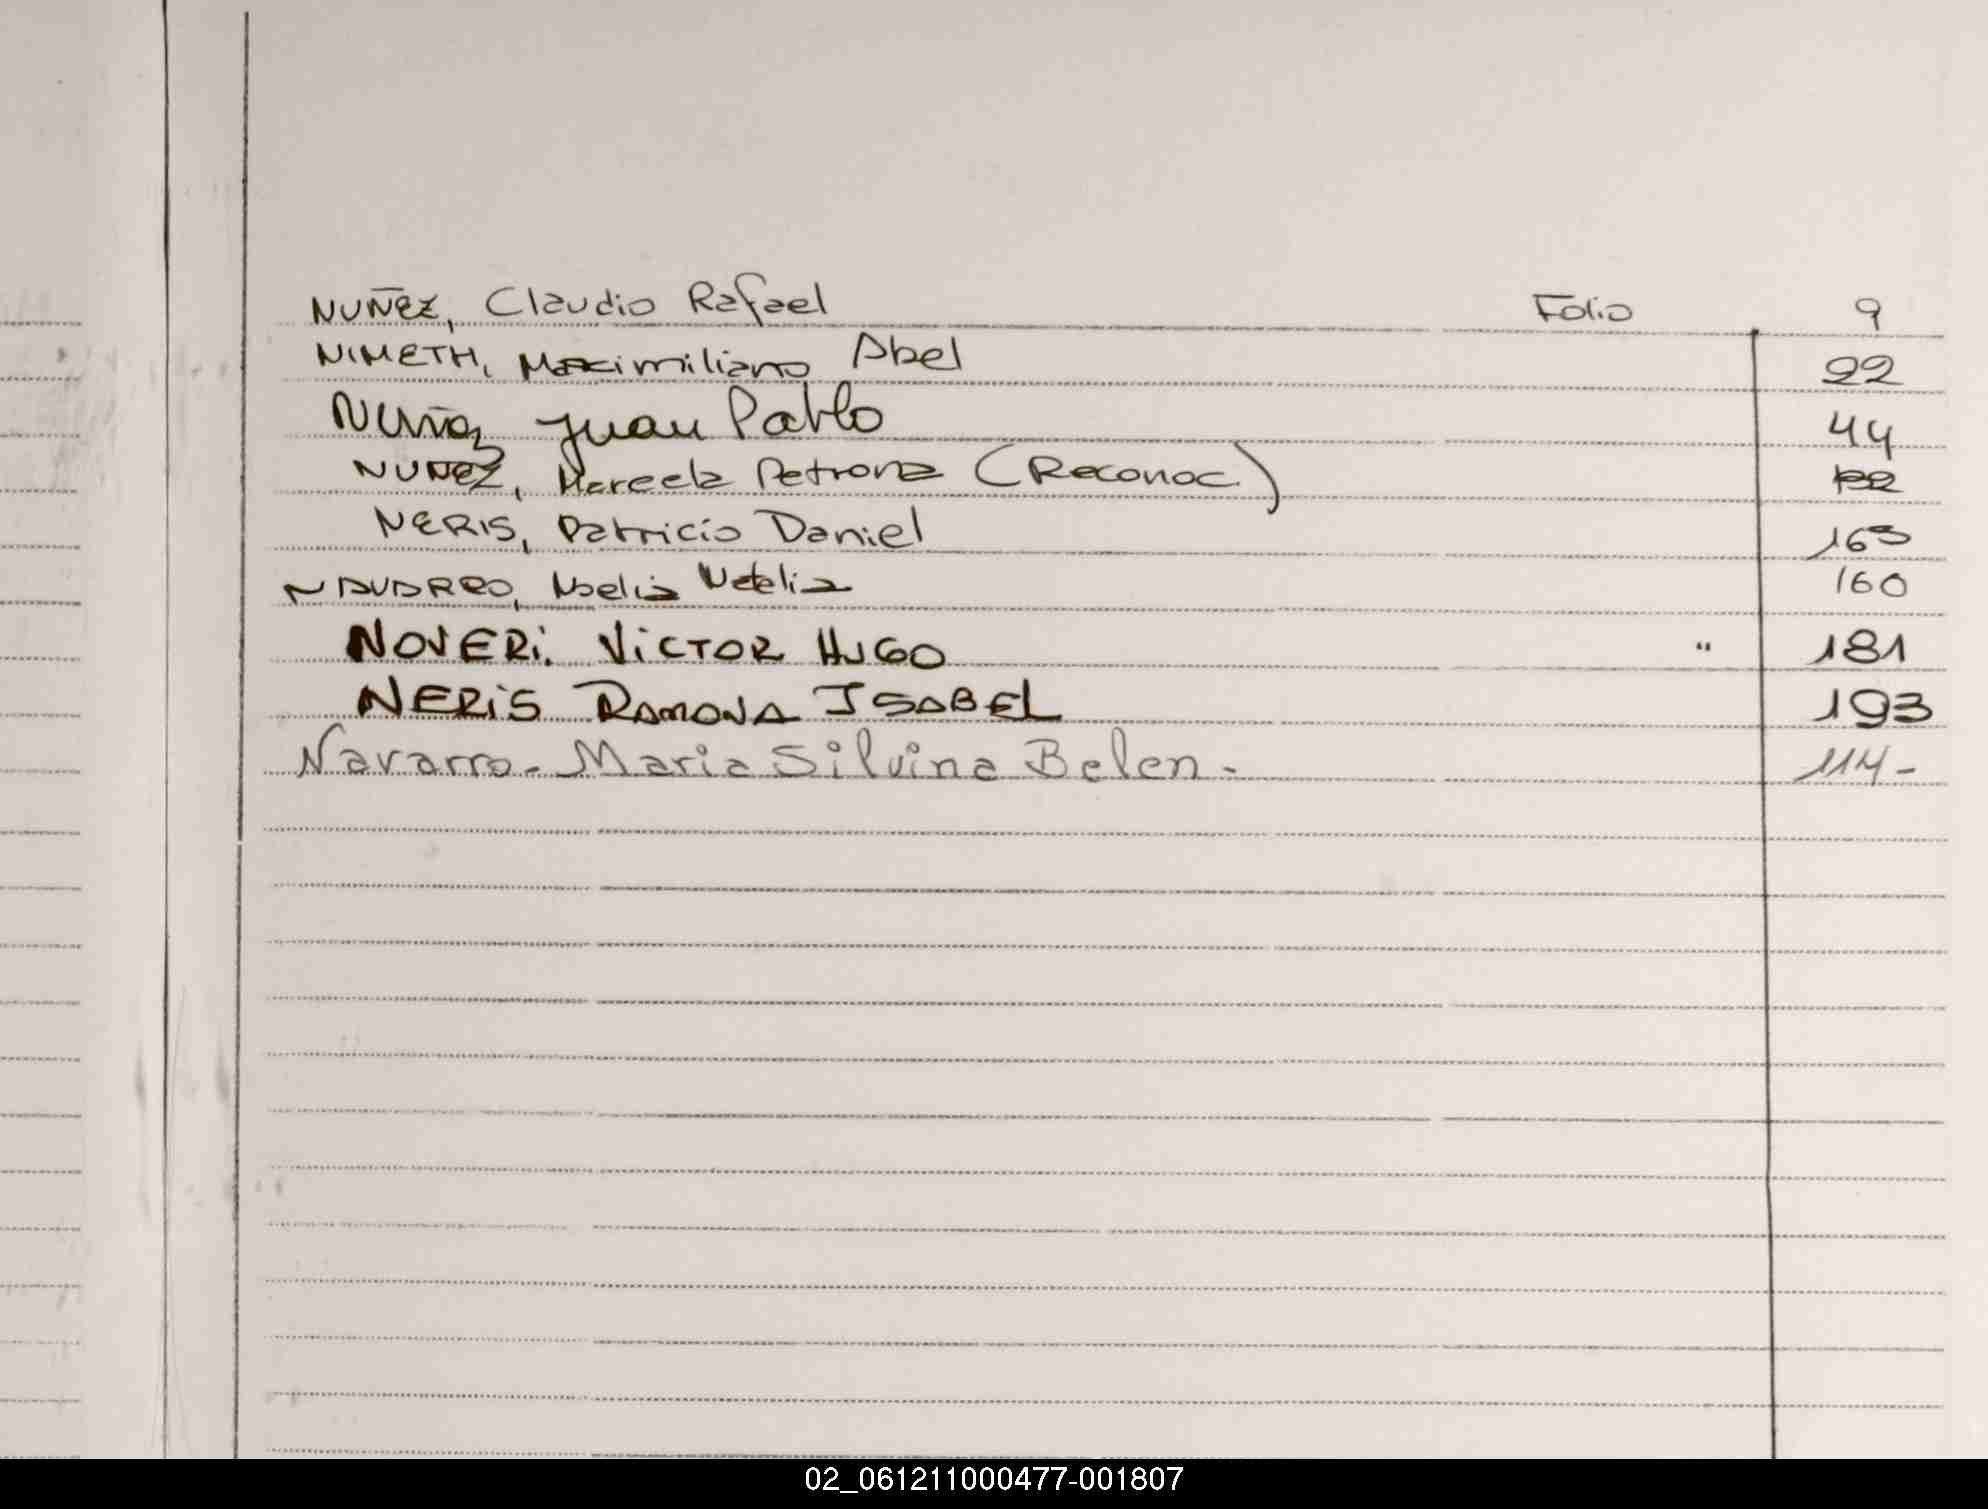 NUÑEZ, Claudio Rafael Folio 9
NIMETH, Maximiliano Abel 22
Nuñez Juan Pablo 44
NUÑEZ, Marcela Petrona (Reconoc.)
NERIS, Patricio Daniel 163
NAVARRO, Noelia Natalia 160
NOVERi. ViCTOR HUGO " 181
NERiS RAMONA ISABEL 193
Navarro- Maria Silvina Belen - 114-
02_061211000477-001807